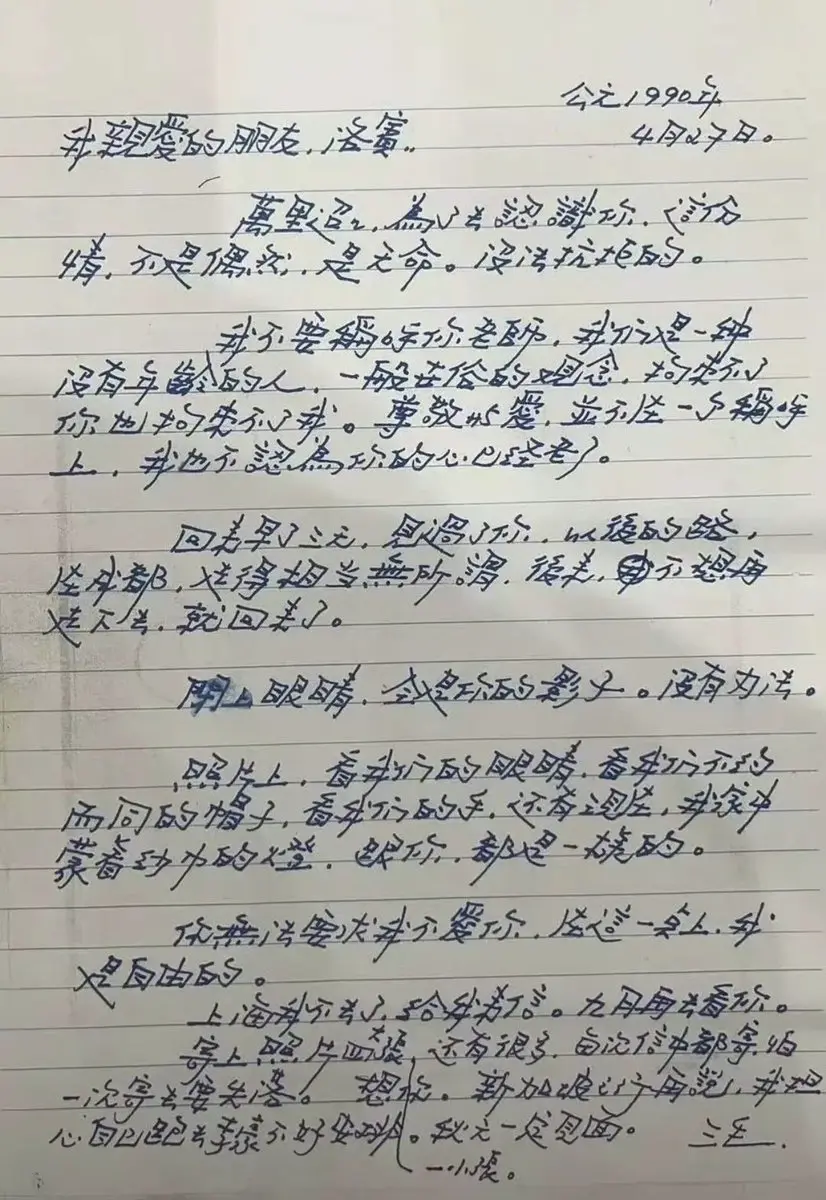 公元1990年
4月27日。
我親愛的朋友，洛賓：
萬里迢々，為了去認識你，這份
情，不是偶然，是天命。沒法抗拒的。
我不要稱呼你老師，我們是一种
沒有年齡的人，一般世俗的观念，拘束不了
你也拘束不了我。尊敬与愛，並不在一个稱呼
上，我也不認為你的心已经老了。
回来早了三天，見過了你，以後的路，
在成都，走得相当無所謂，後来，不想再
走下去，就回来了。
閉上眼睛，全是你的影子。沒有办法。
照片上，看我们的眼睛，看我们不约
而同的帽子，看我们的手，还有現在，我家中
蒙着纱巾的灯，跟你，都是一樣的。
你無法要求我不愛你，在這一点上，我
是自由的。
上海我不去了，给我来信。九月再去看你。
寄上照片四大張，还有很多，每次信中都寄，怕
一次寄去要失落。想你。新加坡之行再説，我担
心自己跑去李家不好安排。秋天一定見面。 三毛
一小張。